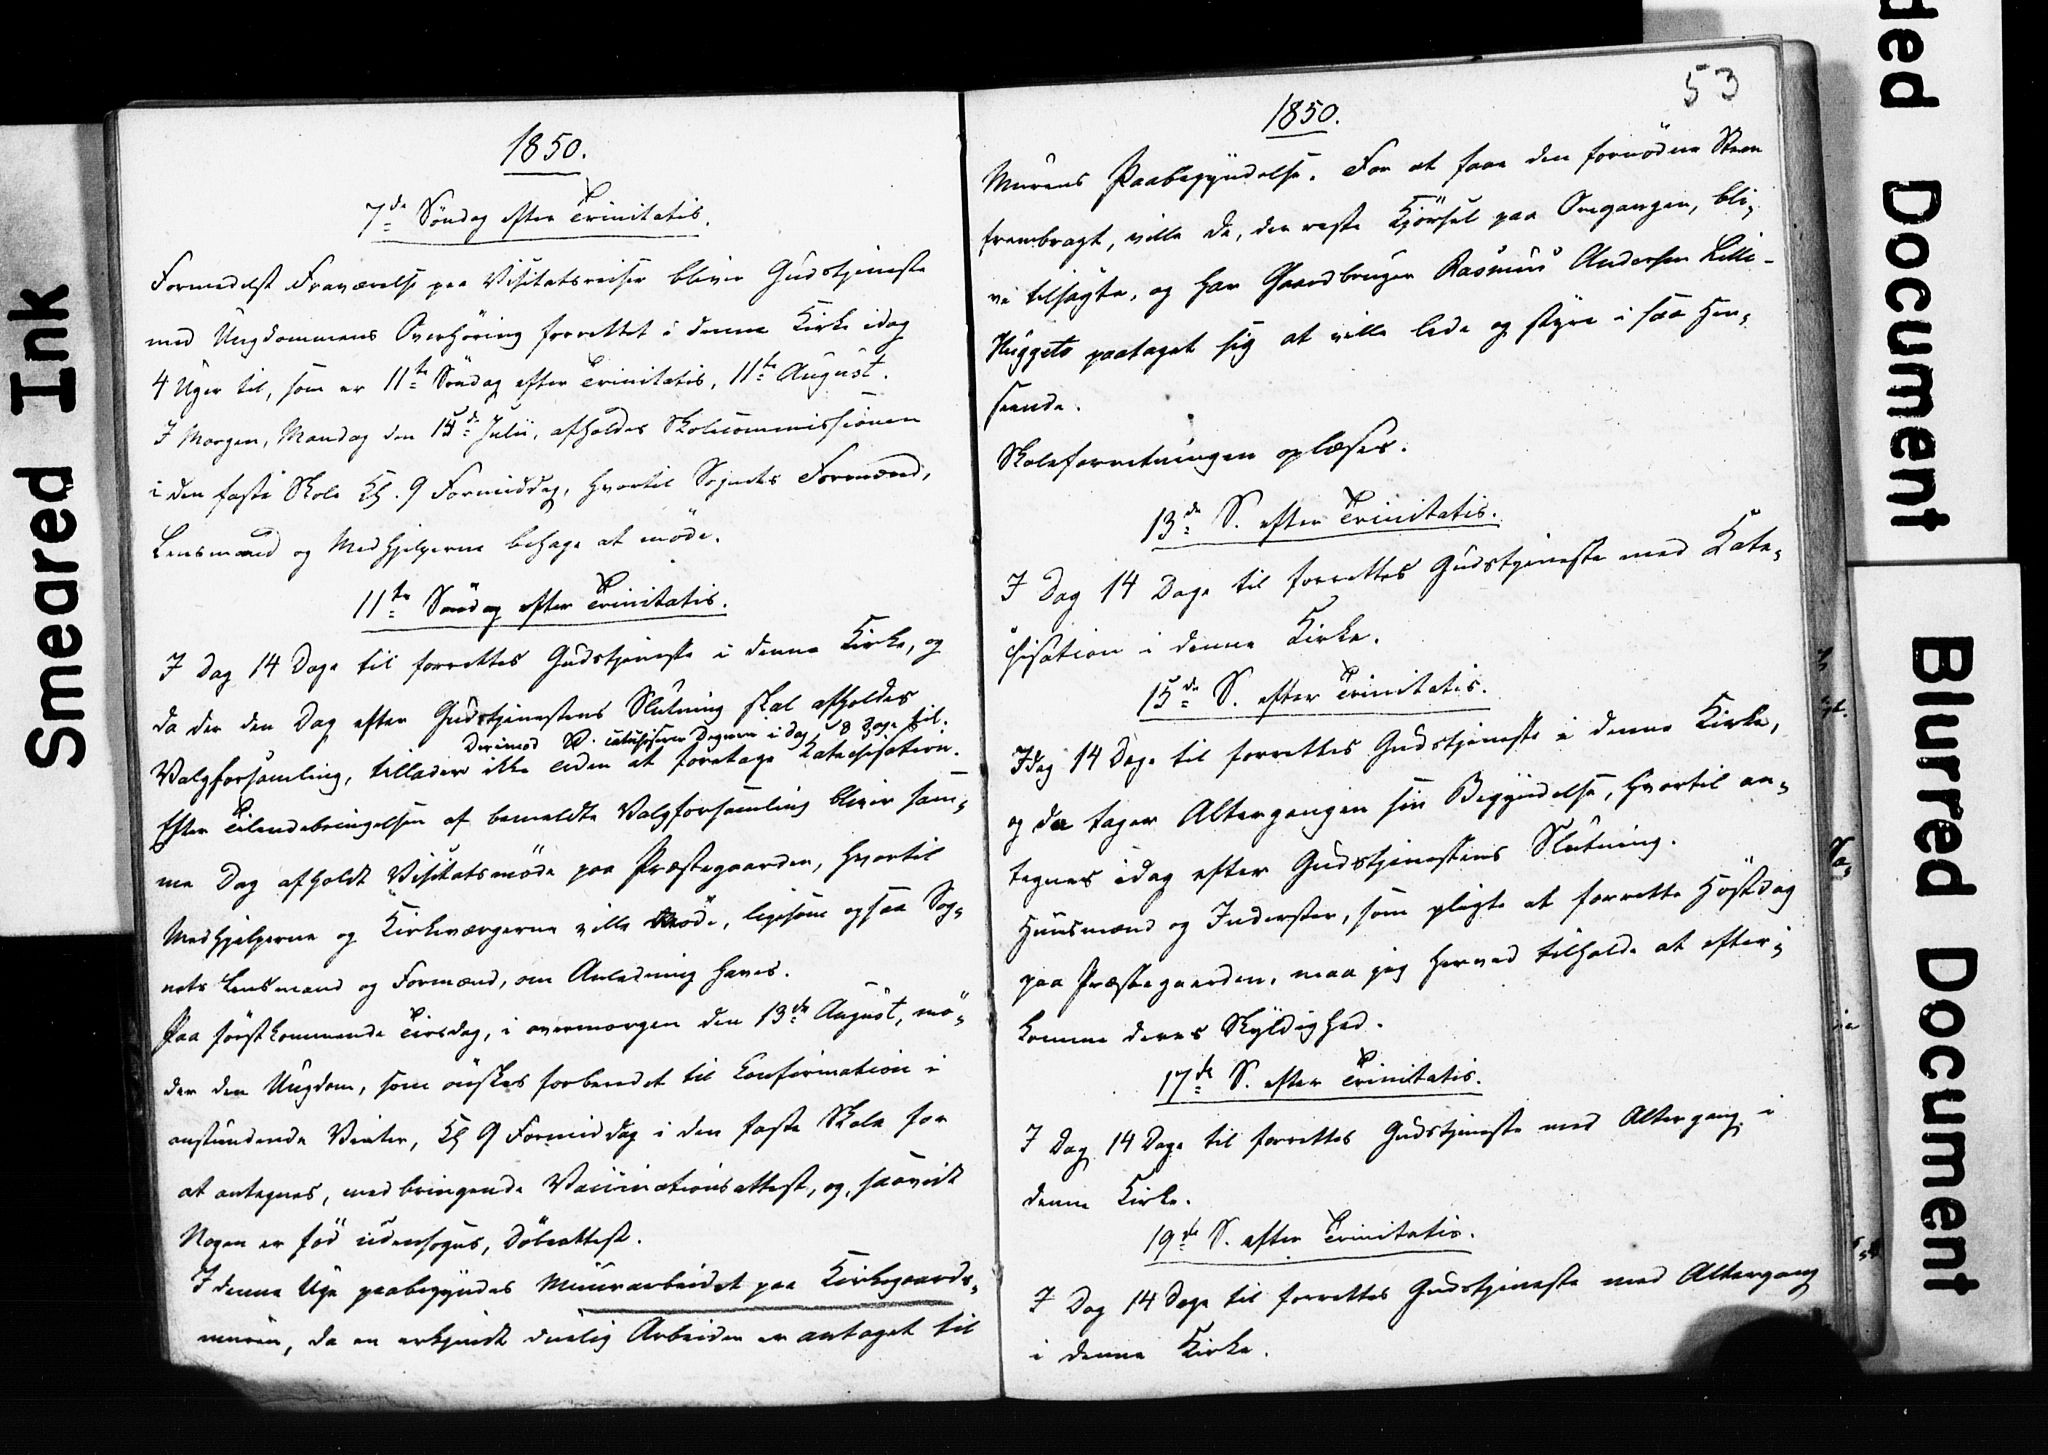 1850.
7de Søndag efter Trinitatis.
Formedelst Fraværelse paa Visitatsreise bliver Gudstjeneste
med Ungdommens Overhöring forrettet i denne Kirke idag
4 Uger til, som er 11te Søndag efter Trinitatis, 11te August.
I Morgen, Mandag den 15de Julii, afholdes Skolecommissionen
i den faste Skole Kl. 9 Formiddag, hvortil Sognets Formænd,
Lensmand og Medhjelperne behage at möde.
11te Søndag efter Trinitatis.
I Dag 14 Dage til forrettes Gudstjeneste i denne Kirke, og
da der den Dag efter Gudstjenestens Slutning skal afholdes
Derimod catechiserer Degnen i dag 8 Dage til.
Valgforsamling, tillader ikke Tiden at foretage Katechisation.
Efter Tilendebringelsen af bemeldte Valgforsamling bliver sam-
me Dag afholdt Visitatsmöde paa Præstegaarden, hvortil
Medhjelperne og Kirkeværgerne ville möde, ligesom ogsaa Sog-
nets Lensmand og Formænd, om Anledning haves.
Paa förstkommende Tirsdag, i overmorgen den 13de August, mö-
der den Ungdom, som önskes forberedet til Confirmation i
anstundende Vinter, Kl 9 Formiddag i den faste Skole for
at antegnes, medbringende Vaccinationsattest, og, saavidt
Nogen er föd udensogns, Döbeattest.
I denne Uge paabegyndes Muurarbeidet paa Kirkegaards-
muren, da en erkjendt duelig Arbeider er antaget til
53
1850.
Murens Paabegyndelse. For at faae den fornödne Steen
frembragt, ville de, der reste Kjörsel paa Omgangen, bli-
ve tilsagte, og har Gaardbruger Rasmus Andersen Lille-
Huggets paataget sig at ville lede og styre i saa Hen-
seende.
Skoleforretningen oplæses.
13de S. efter Trinitatis.
I Dag 14 Dage til forrettes Gudstjeneste med Kate-
chisation i denne Kirke.
15de S. efter Trinitatis.
Idag 14 Dage til forrettes Gudstjeneste i denne Kirke,
og da tager Altergangen sin Begyndelse, hvortil an-
tegnes idag efter Gudstjenestens Slutning.
Huusmænd og Inderster, som pligte at forrette Höstdag
paa Præstegaarden, maa jeg herved tilholde at efter-
komme deres Skyldighed.
17de S. efter Trinitatis.
I Dag 14 Dage til forrettes Gudstjeneste med Altergang i
denne Kirke.
19de S. efter Trinitatis.
I Dag 14 Dage til forrettes Gudstjeneste med Altergang
i denne Kirke.
Smeared Ink
ded Document
Blurred Document